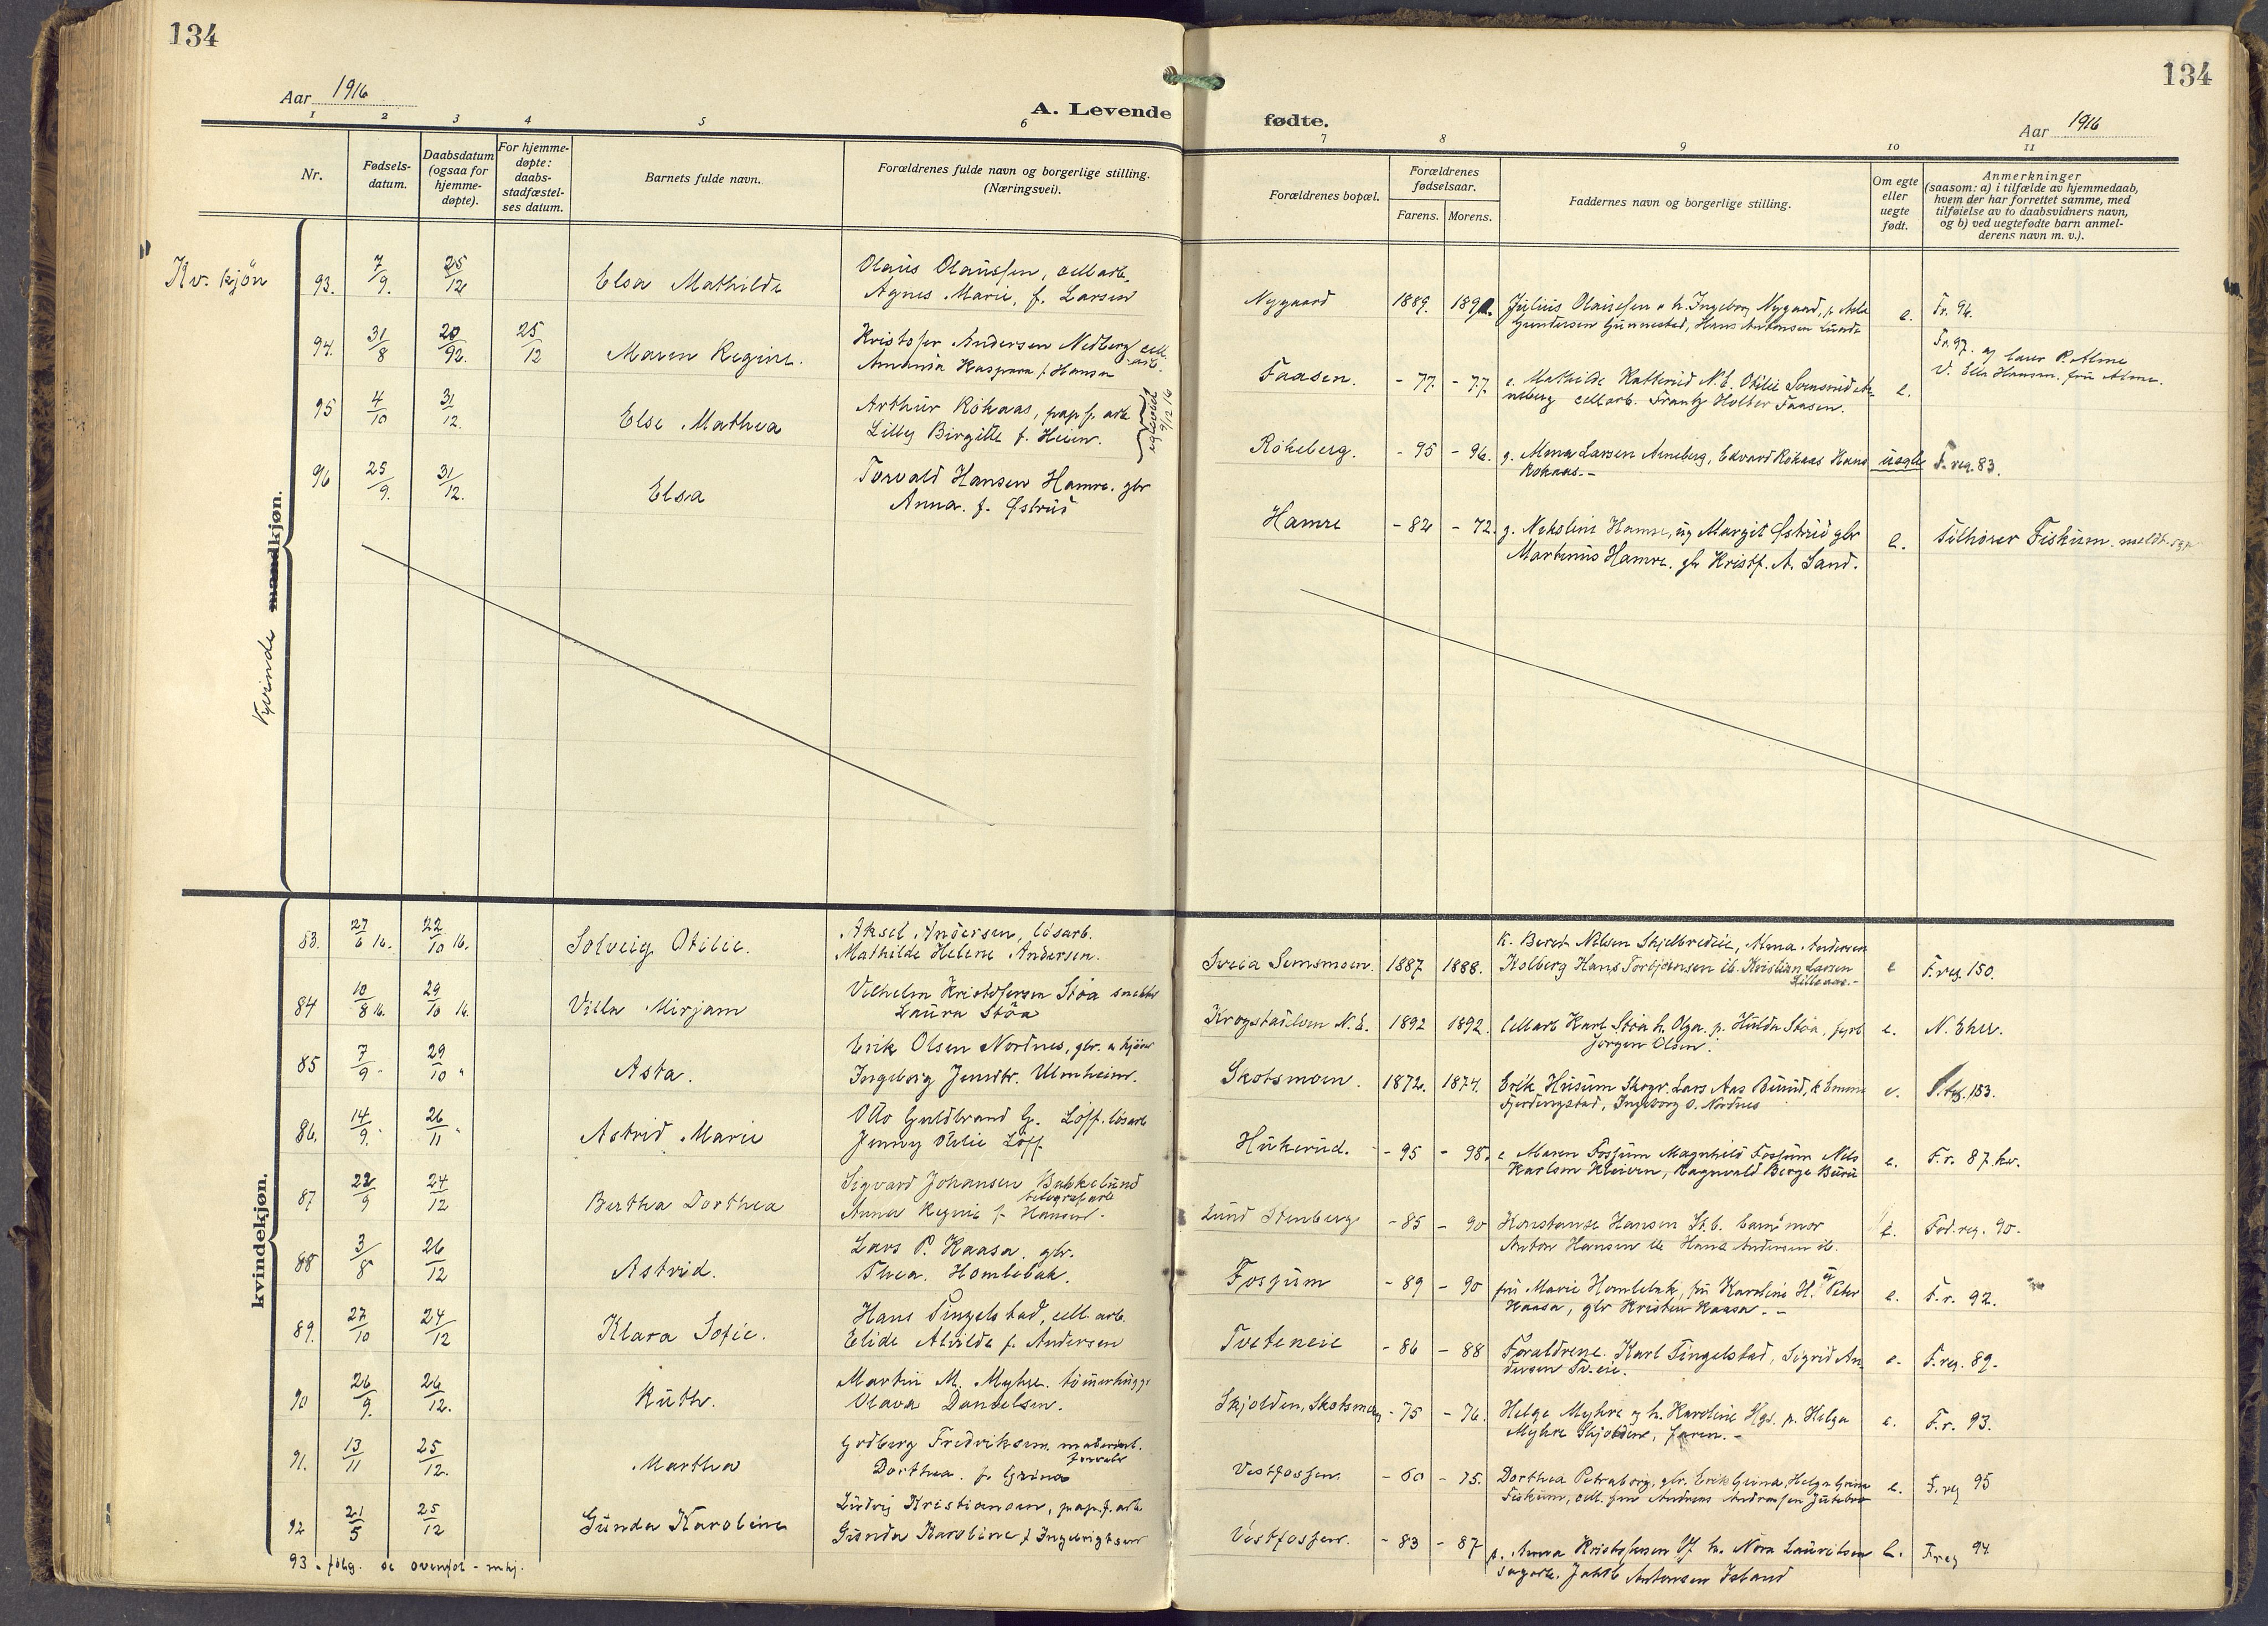 134
134
Aar 1916
A. Levende
fødte.
Aar 1916
1 2 3 4 5 6 7 8 9 10 11
Nr.
Fødsels-
datum.
Daabsdatum
(ogsaa for
hjemme-
døpte).
For hjemme-
døpte:
daabs-
stadfæstel-
ses datum.
Barnets fulde navn.
Forældrenes fulde navn og borgerlige stilling.
(Næringsvei).
Forældrenes bopæl.
Forældrenes
fødselsaar.
Farens. Morens.
Faddernes navn og borgerlige stilling.
Om egte
eller
uegte
født.
Anmerkninger
(saasom: a) i tilfælde av hjemmedaab,
hvem der har forrettet samme, med
tilføielse av to daabsvidners navn,
og b) ved uegtefødte barn anmel-
derens navn m. v.).
Kv. kjön
Kvinde mandkjøn.
93. 7/9. 25/12 Elsa Mathilde
Olaus Olaussen, cell arb.
Agnes Marie, f. Larsen
Nygaard 1889. 1891.
Julius Olaussen o h. Ingeborg Nygaard, p. Asla
Gundersen Gunnestad, Hans Antonsen Lunde
e. Fr. 96.
94. 31/8 20/92. 25/12 Maren Regine.
Kristofer Andersen Nedberg cell.
arb.
Amanda Kaspara f. Hansen
Faasen. - 77. - 77
e. Mathilde Hatterud N. E. Otilie Svensrud
neberg cellarb. Frantz Holter Faasen.
e.
Fr. 97. af laur P. Alme
V. Ella Hansen. fru Alme.
95 4/10 31/12. Else Mathea
Arthur Rökaas, pap. f. arb
Lilly Birgitte f. Heien.
egteviet
9/12 16
Rökeberg. - 95 - 96.
g. Mena Larsen Arneberg, Edvard Rökaas Hans
Rökaas. -
uegte F. reg. 83.
96 25/9. 31/12. Elsa
Torvald Hansen Hamre. gbr
Anna. f. Østrud
Hamre - 82 - 72.
g. Nikoline Hamre, ug Margit Østrud gbr
Martinius Hamre. gb Kristf. A. Sand.
e. Tilhører Fiskum. meldt.
kvindekjøn.
83. 27/6 16. 22/10 16. Solveig Otilie.
Aksel Andersen, lösarb.
Mathilde Helene Andersen.
Sveia Semsmoen. 1887 1888.
k. Beret Nilsen Skjelbredeie, Alma Andersen
Kolberg Hans Torbjörnsen ib. Kristian Larsen
Lilleaas. -
e F. reg 150.
84 10/8 16. 29/10 16. Villa Mirjam
Vilhelm Kristofersen Stöa snekker
Laura Stöa
Krogstadelven N. E. 1892 1892.
Cellarb Karl Stöa h. Olga. p. Hulda Stöa, fyrb
Jörgen Olsen.
e. N. Eker.
85 7/9 " 29/10 " Asta.
Erik Olsen Nordnes, gbr. o kjörer
Ingeborg Jensdtr. Ulmheim.
Skotsmoen. 1872. 1874.
Erik Husum Skogr. Lars Aas Buind, k Emma
Fjerdingstad, Ingeborg O. Nordnes
e. F. reg. 153.
86. 14/9. " 26/11 " Astrid Marie
Otto Guldbrand G. Löff. lösarb
Jenny Otilie Löff
Hukerud. - 95 - 98.
e Maren Fossum Magnhild Fossum Nils
Karlsen Kleiven, Ragnvald Berge Buru
e. F. r. 87 kv.
87 22/9 24/12 Bertha Dorthea
Sigvard Johansen Bakkelund
telegrafarb
Anna Regine f. Hansen.
Lund Stenberg - 85 - 90
Konstanse Hansen St. b. barn mor
Anton Hansen ib Hans Andersen ib.
e. Fød. reg. 90.
88 3/8 26/12 Astrid.
Lars P. Kaasa. gbr.
Thea. Homlebak.
Fossum - 89 - 90
fru Marie Homlebak, fru Karoline H. Peter
Kaasa, gbr Kristen Kaasa. -
e. F. r. 92.
89. 27/10 24/12 Klara Sofie.
Hans Tingelstad, cell. arb.
Elide Alvilde f. Andersen
Tveteneie - 86 - 88
Foraldrene. Karl Tingelstad, Sigrid An-
dersen Tv. eie.
e. F. reg. 89.
90 26/9. 26/12. Ruth.
Martin M. Myhre. tömerhugg.
Olava Danielsen.
Skjolden, Skotsmoen - 75 - 76.
Helge Myhre og h. Karoline Hgs. p. Helga
Myhre Skjolden, faren. -
e. F. r. 93.
91. 13/11 25/12. Marthea
Godberg Fredriksen. material.
forvalt
Dorthea. f. Grina
Vestfossen - 60 - 75.
Dorthea Petraborg, gbr. Erik Grina, Helga Grina
Fiskum, cell. form Andreas Andreassen
e. F. reg 95
92 21/5 25/12 Gunda Karoline
Ludvig Kristiansen, pap. f. arb.
Gunda Karoline f Ingebrigtsen
Vestfossen. - 83 - 87
p. Anna Kristofersen Vf. h. Nora Lauritsen
sagarb. Jakob Antonsen Island
e. F. reg 94
93 - følg. se ovenfor - mkj.